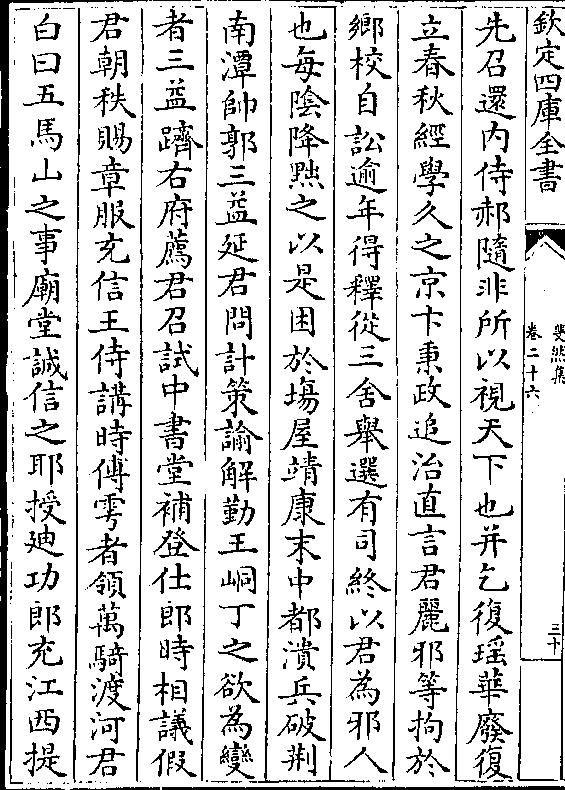 欽定四庫全書
斐然集
卷二十六
三十
先召還内侍郝隨非所以視天下也并乞復瑶華廢復
立春秋經學久之京卞秉政追治直言君麗邪等拘於
鄉校自訟逾年得釋從三舍舉選有司終以君為邪人
也每陰降黜之以是困於場屋靖康末中都潰兵破荆
南潭帥郭三益延君問計策諭解勤王峒丁之欲為變
者三益躋右府薦君召試中書堂補登仕郎時相議假
君朝秩賜章服充信王侍講時傅雱者領萬騎渡河君
白曰五馬山之事廟堂誠信之耶授廸功郎充江西提